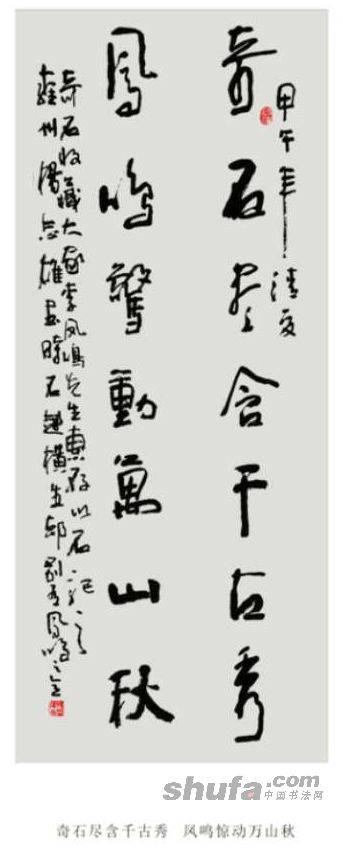 甲午年清夏
奇石尽含千古秀
鳳鳴驚動萬山秋
奇石收藏大家李鳳鳴先生惠存以石
雍州楊志雄書
shufa.com
中国书法网
奇石尽含千古秀 凤鸣惊动万山秋